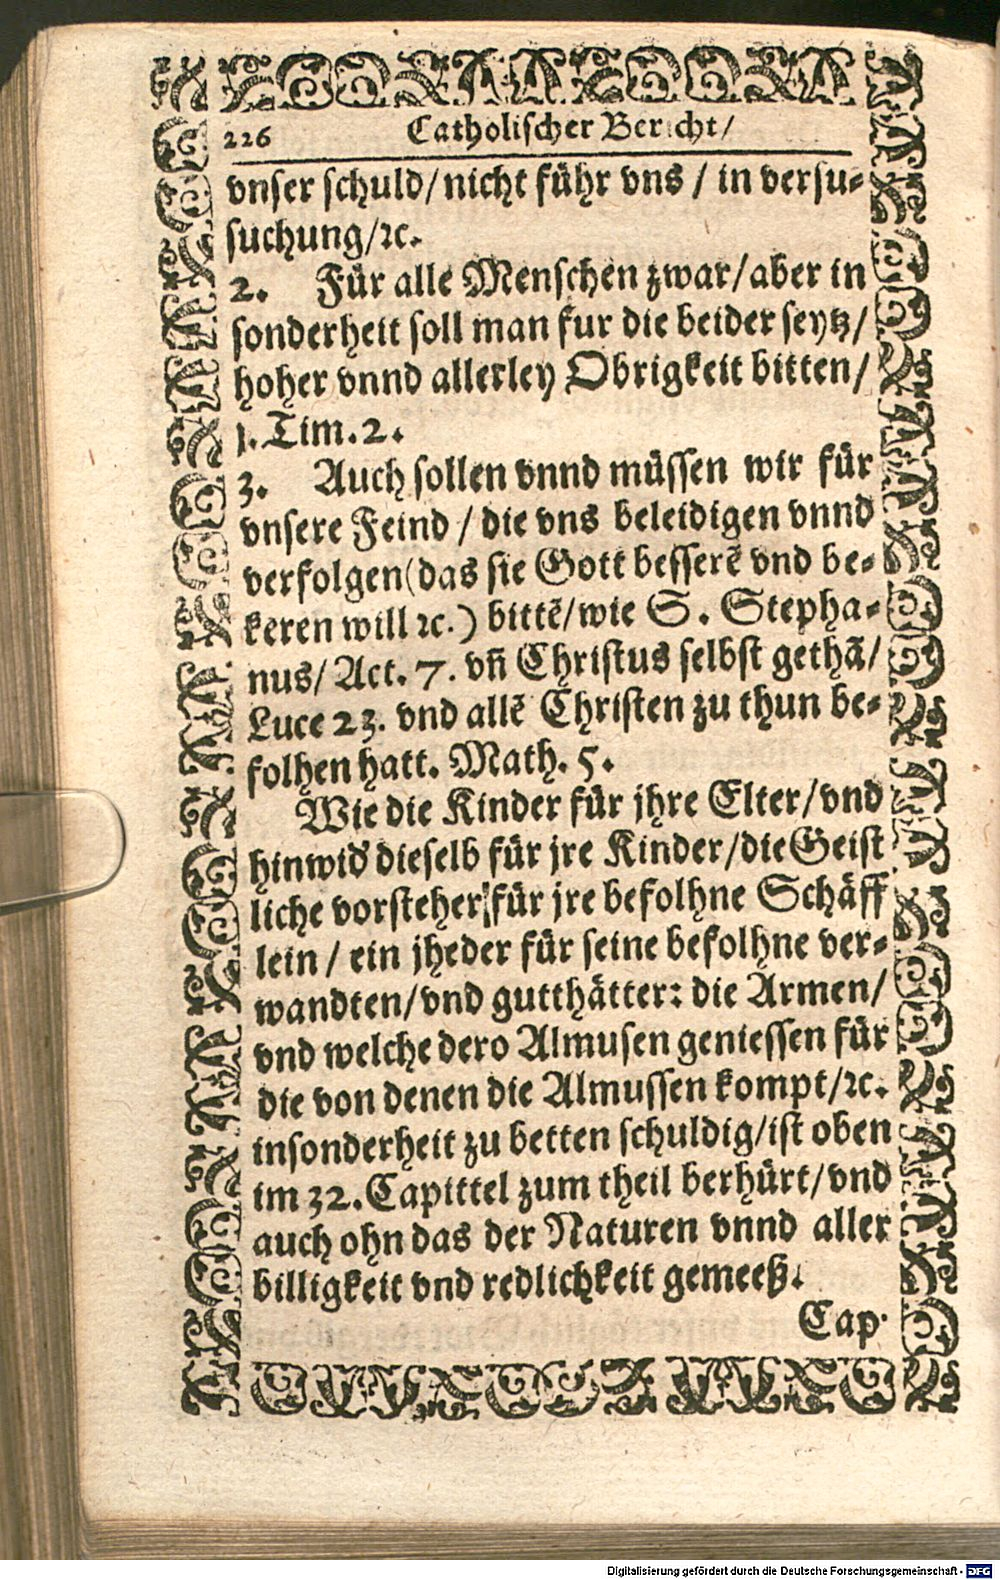 226 Catholischer Bericht/
vnser schuld/ nicht führ vns / in versu-
suchung/ꝛc.
2. Für alle Menschen zwar/ aber in
sonderheit soll man fur die beider seytz/
hoher vnnd allerley Obrigkeit bitten/
1. Tim. 2.
3. Auch sollen vnnd müssen wir für
vnsere Feind / die vns beleidigen vnnd
verfolgen (das sie Gott besserẽ vnd be-
keren will ꝛc.) bittẽ/ wie S. Stepha-
nus/ Act. 7. vñ Christus selbst gethã/
Luce 23. vnd allẽ Christen zu thun be-
folhen hatt. Math. 5.
Wie die Kinder für jhre Elter/ vnd
hinwid' dieselb für jre Kinder/ die Geist
liche vorsteher/ für jre befolhne Schäff
lein / ein jheder für seine befolhne ver-
wandten/ vnd gutthätter: die Armen/
vnd welche dero Almusen geniessen für
die von denen die Almussen kompt/ꝛc.
insonderheit zu betten schuldig/ ist oben
im 32. Capittel zum theil berhürt/ vnd
auch ohn das der Naturen vnnd aller
billigkeit vnd redlichkeit gemeeß.
Cap.
Digitalisierung gefördert durch die Deutsche Forschungsgemeinschaft - DFG